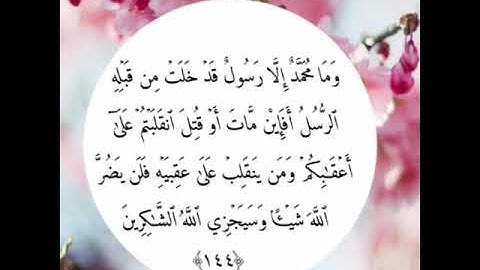 وَمَا مُحَمَّدٌ إِلَّا رَسُولٌ قَدۡ خَلَتۡ مِن قَبۡلِهِ
ٱلرُّسُلُ أَفَإِيْن مَّاتَ أَوۡ قُتِلَ ٱنقَلَبۡتُمۡ عَلَىٰٓ
أَعۡقَٰبِكُمۡ وَمَن يَنقَلِبۡ عَلَىٰ عَقِبَيۡهِ فَلَن يَضُرَّ
ٱللَّهَ شَيۡـٔٗا وَسَيَجۡزِي ٱللَّهُ ٱلشَّٰكِرِينَ
﴿١٤٤﴾